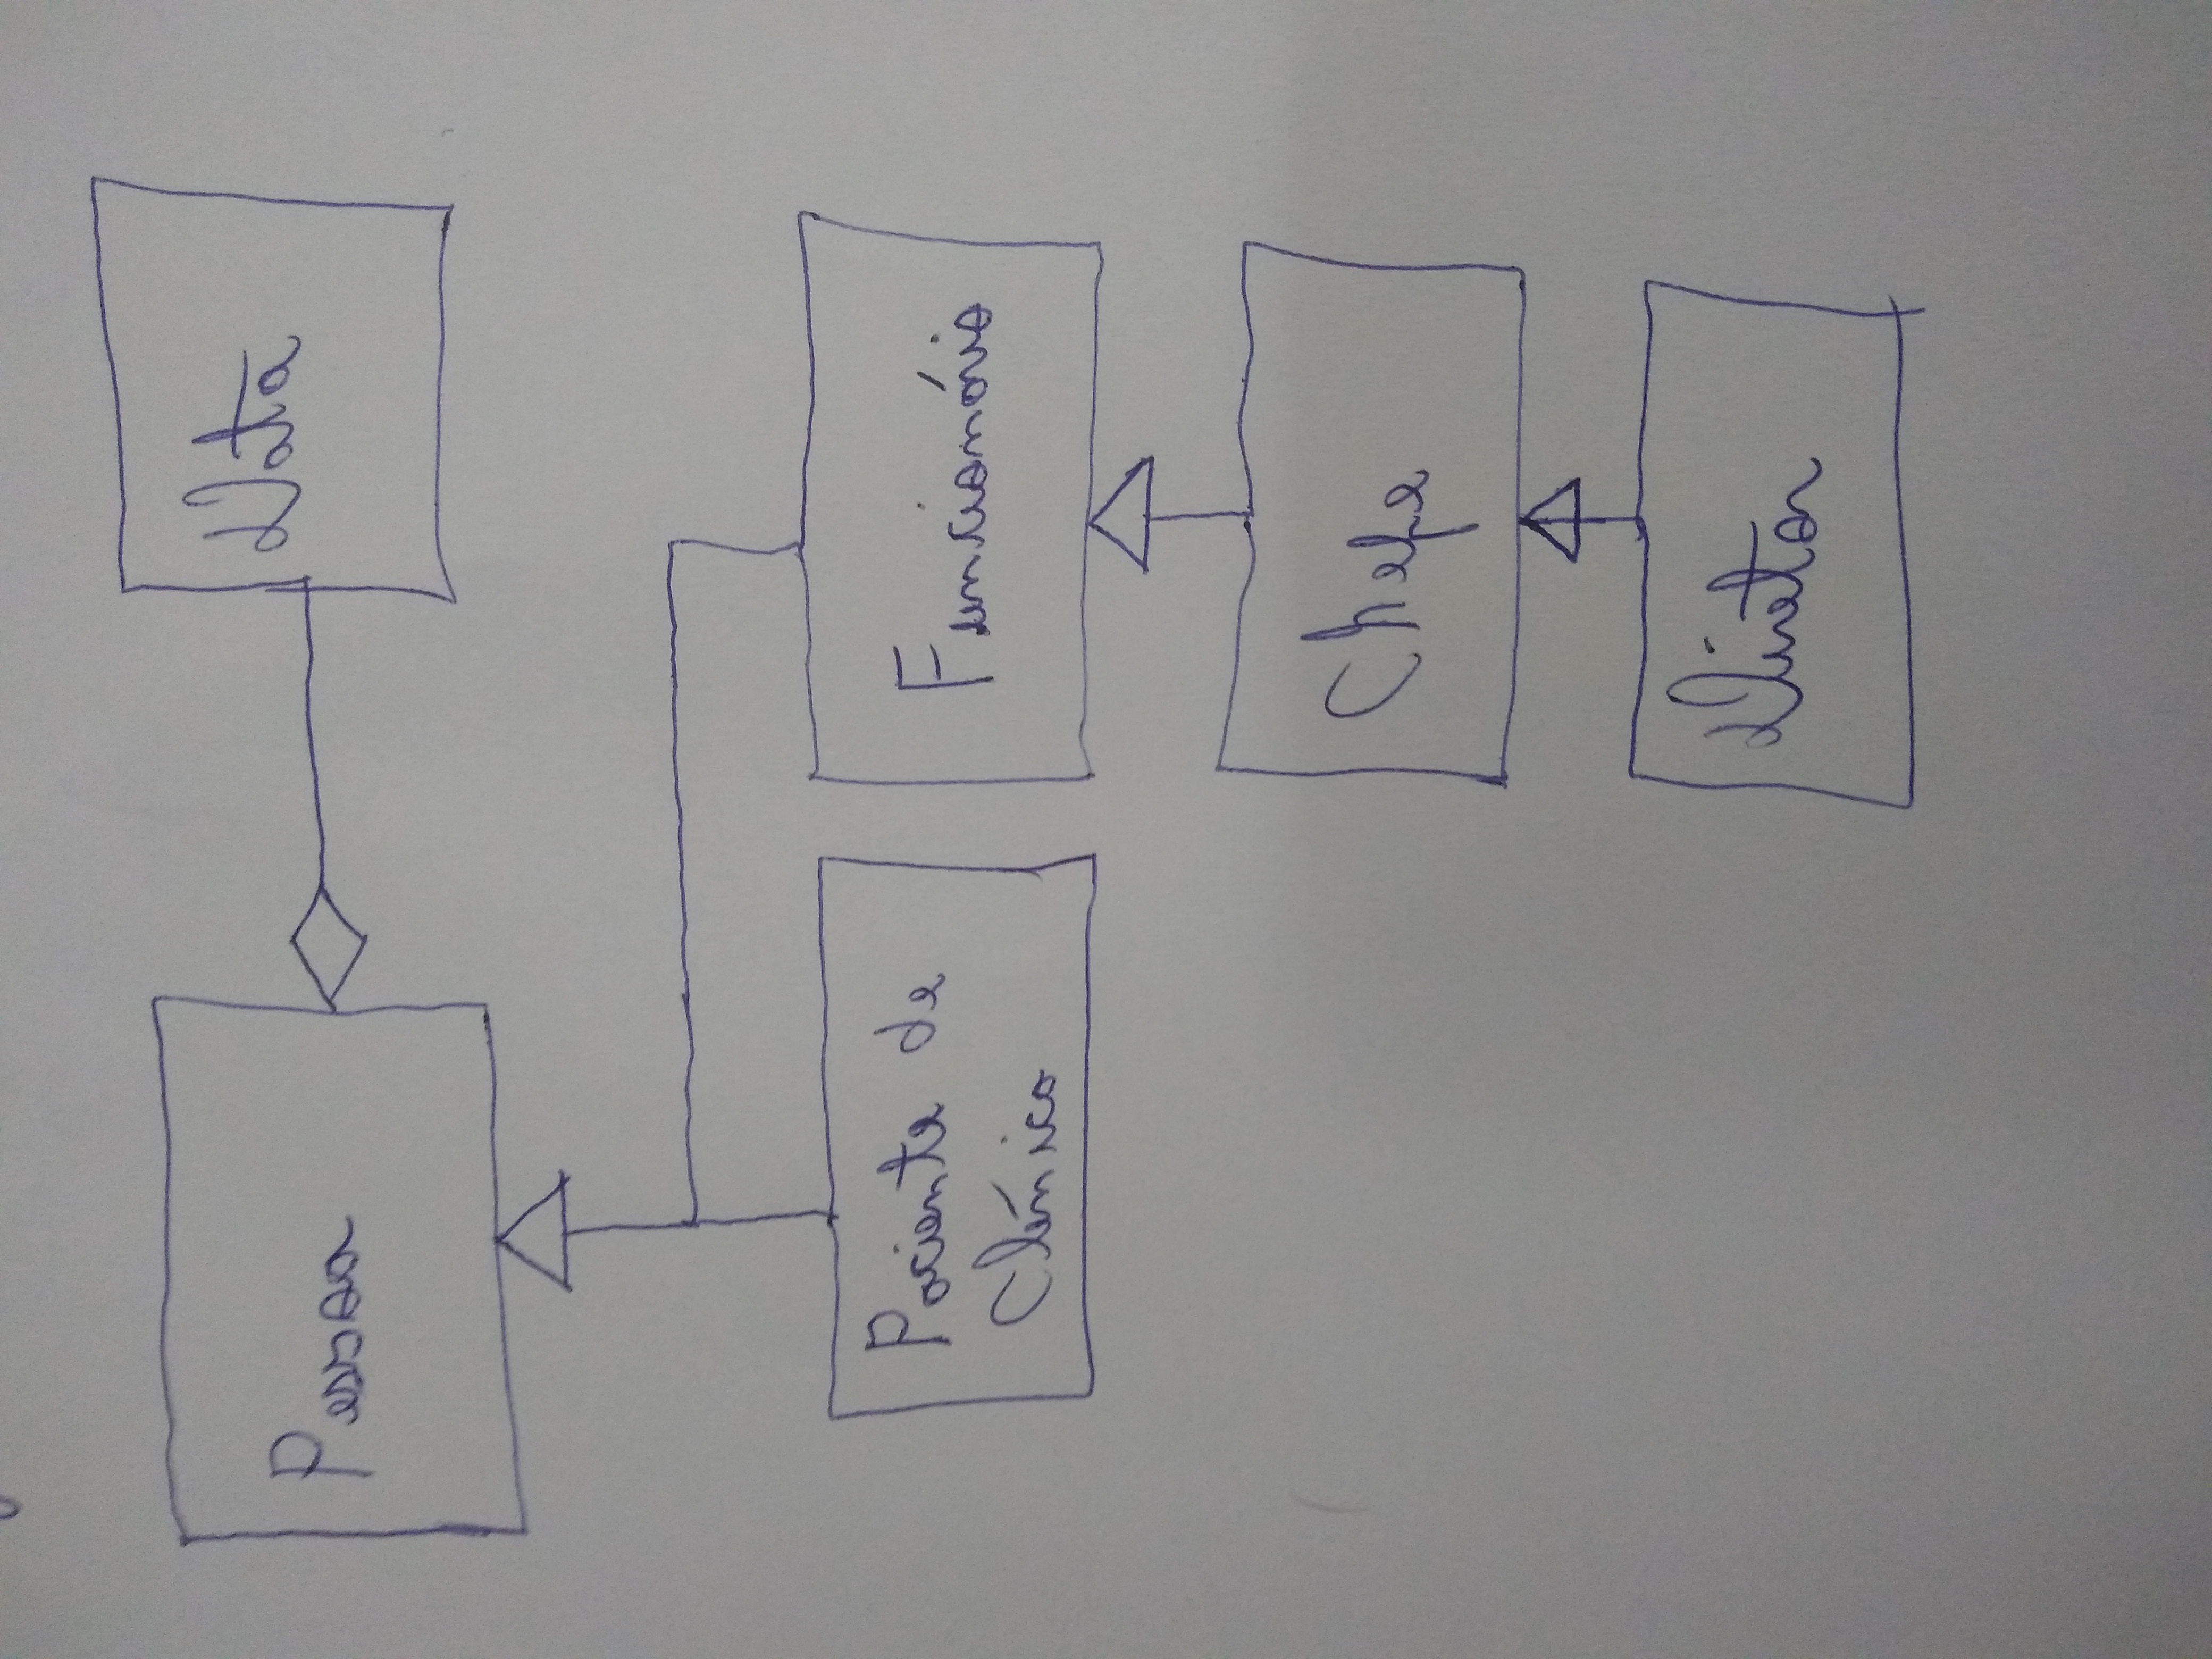 Pessoa
Data
Paciente de
Clínica
Funcionário
Chefe
Diretor